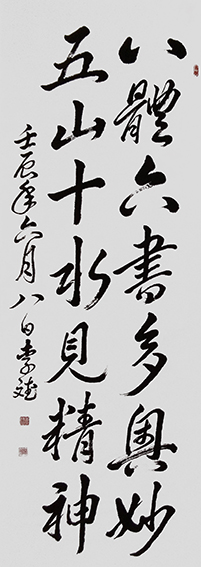 八體六書多奧妙
五山十水見精神
壬辰年六月八白李斌